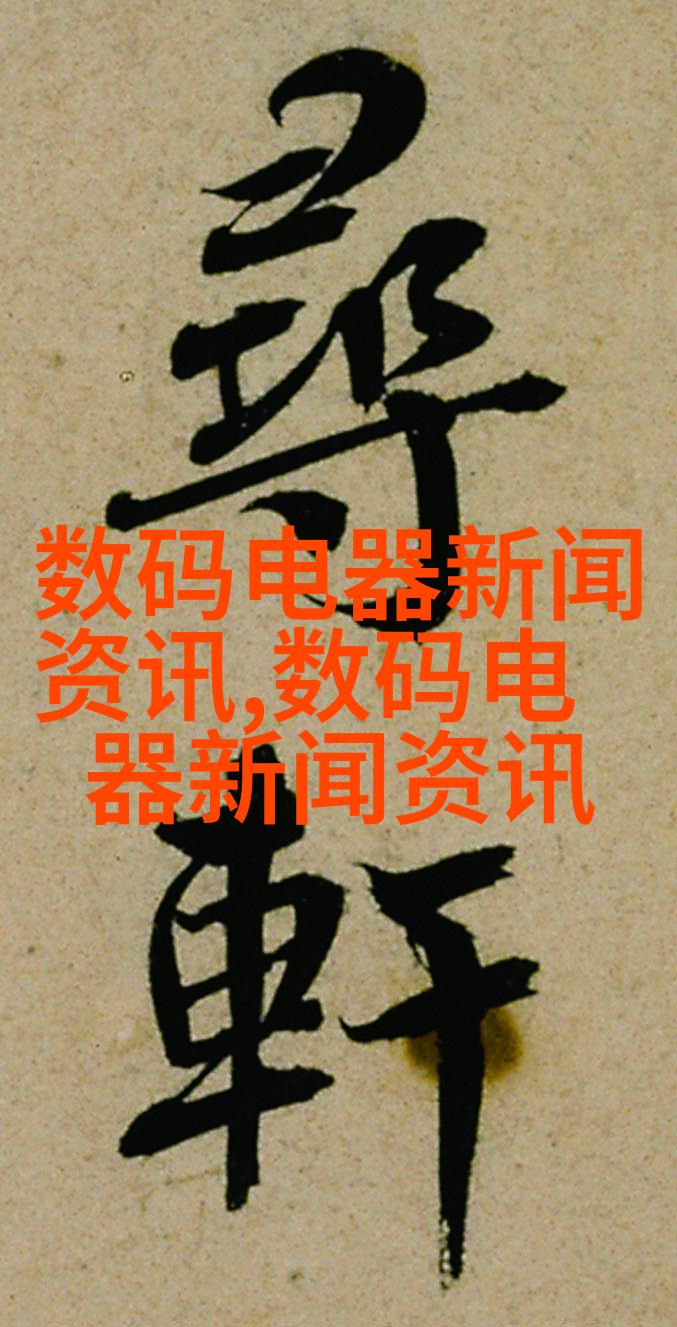 尋
軒
数码电器新闻
资讯,数码电
器新闻资讯